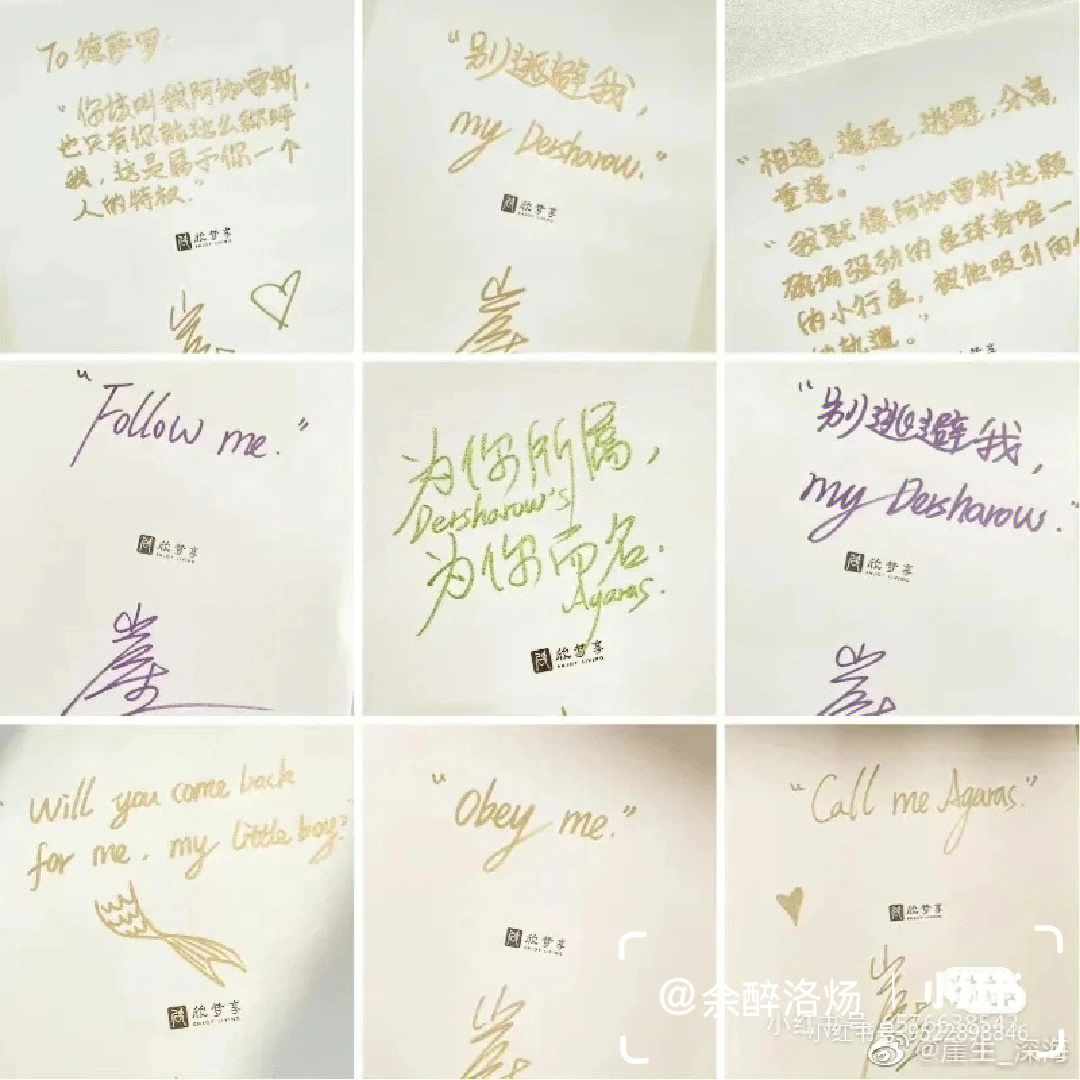 To 德萨罗:
“你该叫我阿伽雷斯,
也只有你能这么称呼
我,这是属于你一个
人的特权.”
欣梦享
ENJOY LIVING
“别逃避我,
my Dersharow.”
欣梦享
ENJOY LIVING
“相遇,追逐,逃避,分离,
重逢。”
“我就像阿伽雷斯这颗
磁场强劲的星球旁唯一
的小行星,被他吸引向
轨道。”
“Follow me.”
欣梦享
ENJOY LIVING
崖生
为你所属,
Dersharow's
为你而名.
Agaras.
欣梦享
ENJOY LIVING
“别逃避我,
my Dersharow.”
欣梦享
ENJOY LIVING
崖生
Will you come back
for me, my little boy?
欣梦享
ENJOY LIVING
“Obey me.”
欣梦享
ENJOY LIVING
“Call me Agaras.”
欣梦享
ENJOY LIVING
@余醉洛炀
小红书
小红书号
@崖生_深海